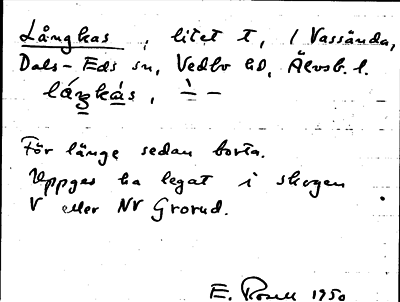 Långkas, litet t, i Vassända,
Dals-Eds sn, Vedbo hd, Älvsb. l.
lángkás, ` –
För länge sedan borta.
Uppges ha legat i skogen
V eller NV Grorud.
E. Rosell 1950